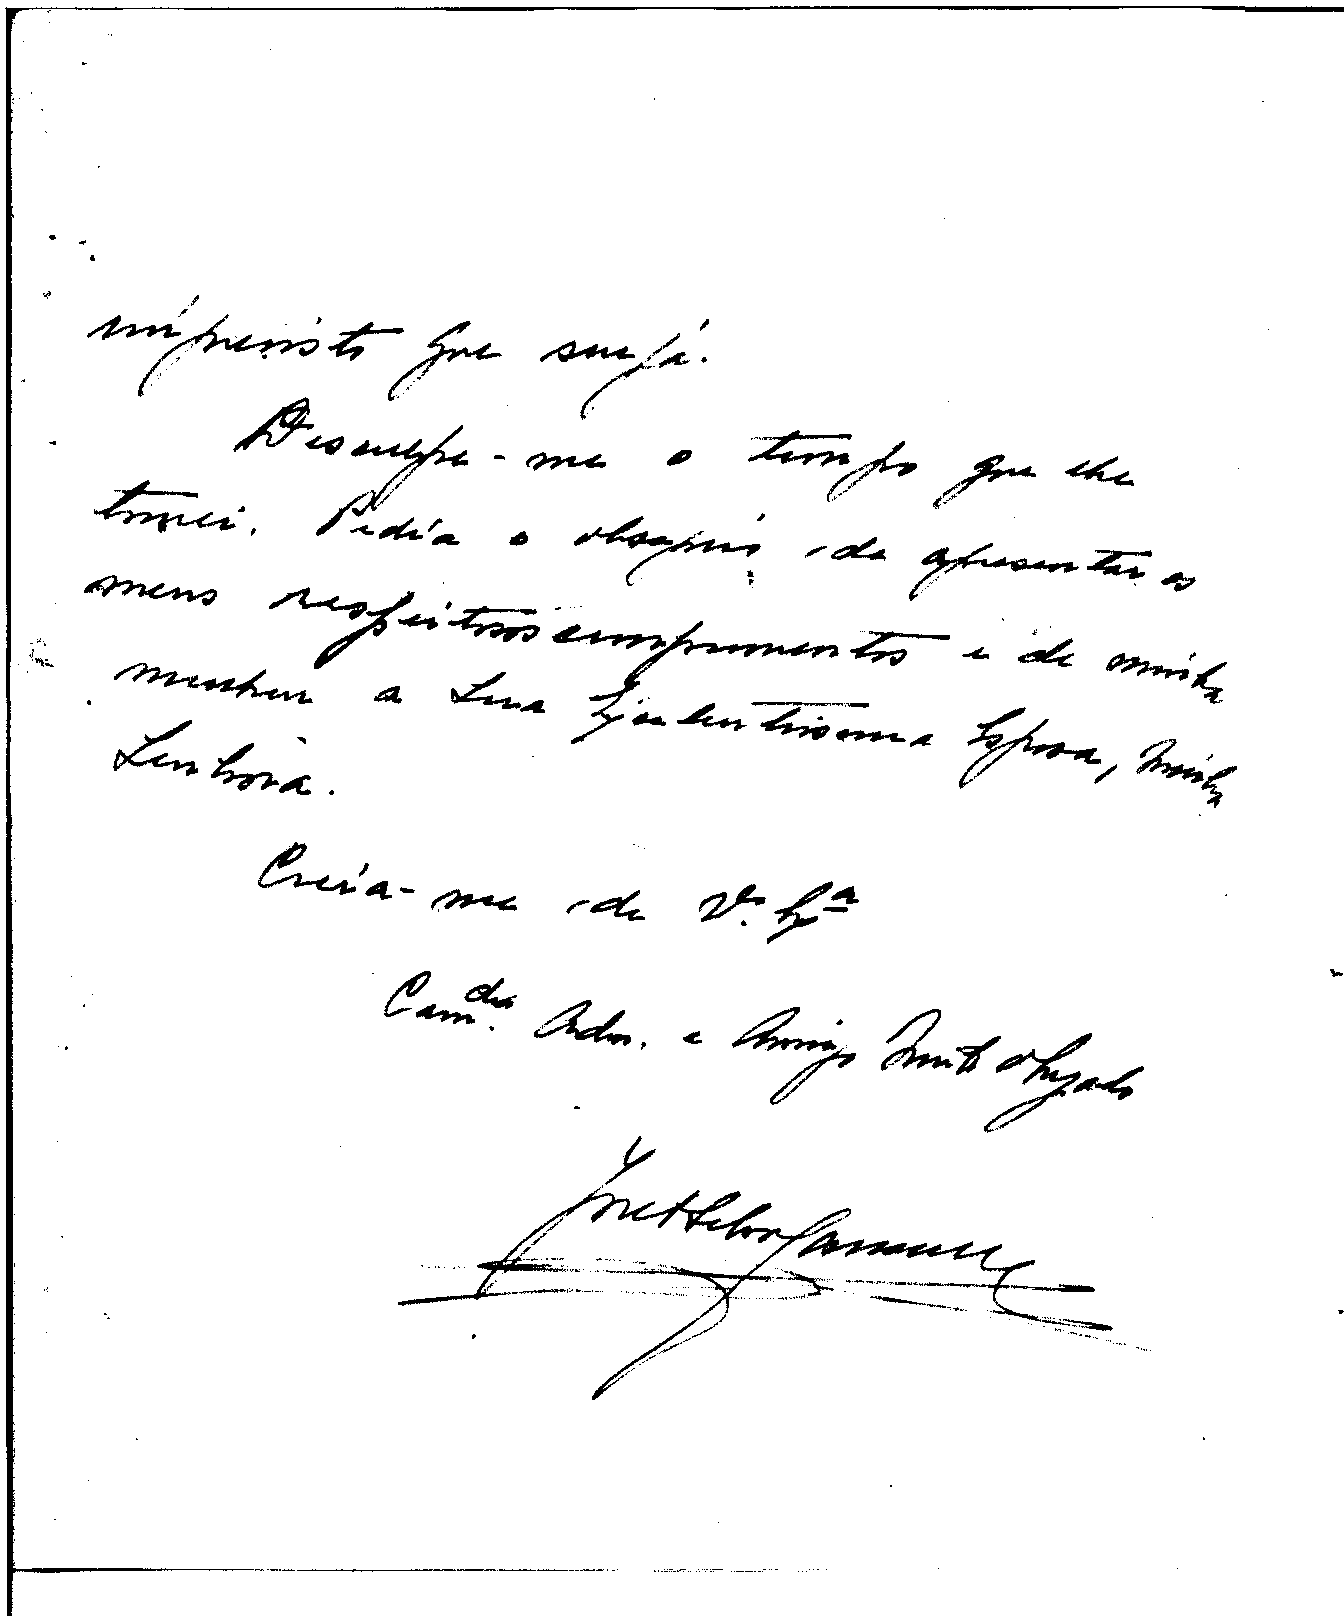 imprevisto que surja.
Desculpe-me o tempo que lhe
tomei. Pedia o obsequio de apresentar os
meus respeitosos cumprimentos e de minha
mulher a Sua Excelentissima Esposa, Minha
Senhora.
Creia-me de V. Exª
Camdª. Ador. e Amigo Muito obrigado
José